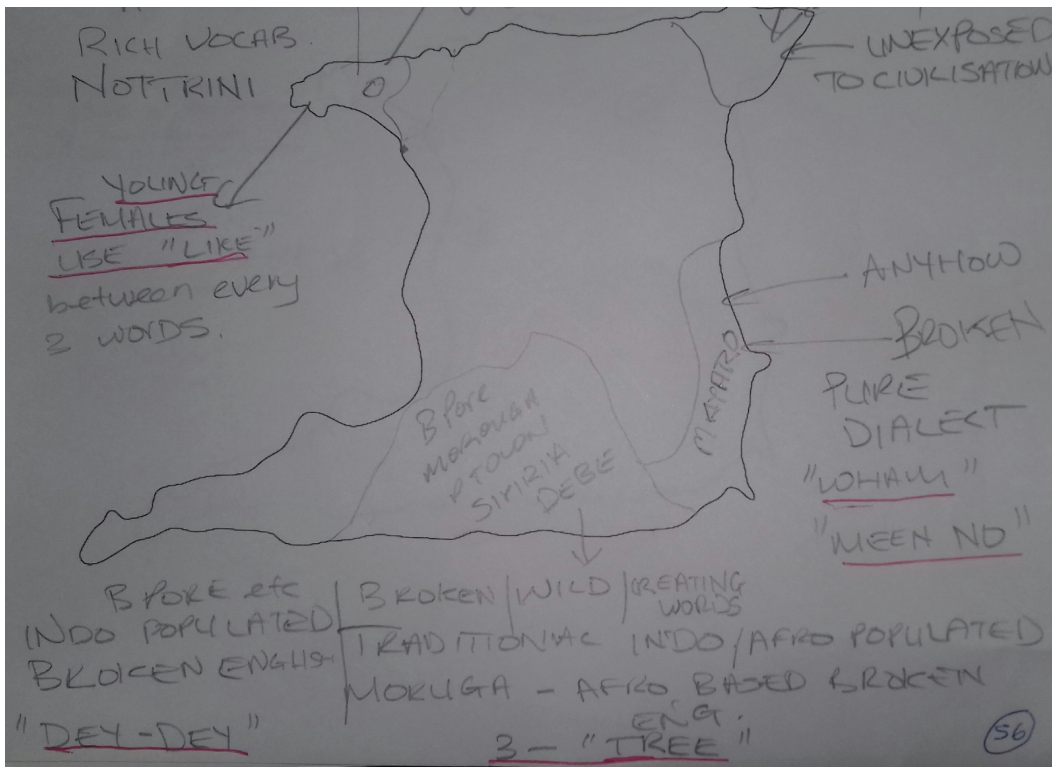 RICH VOCAB.
NOT TRINI
UNEXPOSED
TO CIVILISATION
YOUNG
FEMALES
USE "LIKE"
between every
2 WORDS.
ANYHOW
BROKEN
PURE
DIALECT
"WHAM"
"MEEN NO"
MAYARO
B Pore
MOROUGA
P TOWN
SIPIRIA
DEBE
B PORE etc
INDO POPULATED
BROKEN ENGLISH
"DEY-DEY"
BROKEN / WILD / CREATING WORDS
TRADITIONIAL INDO / AFRO POPULATED
MORUGA - AFRO BASED BROKEN
ENG.
3 - "TREE"
56